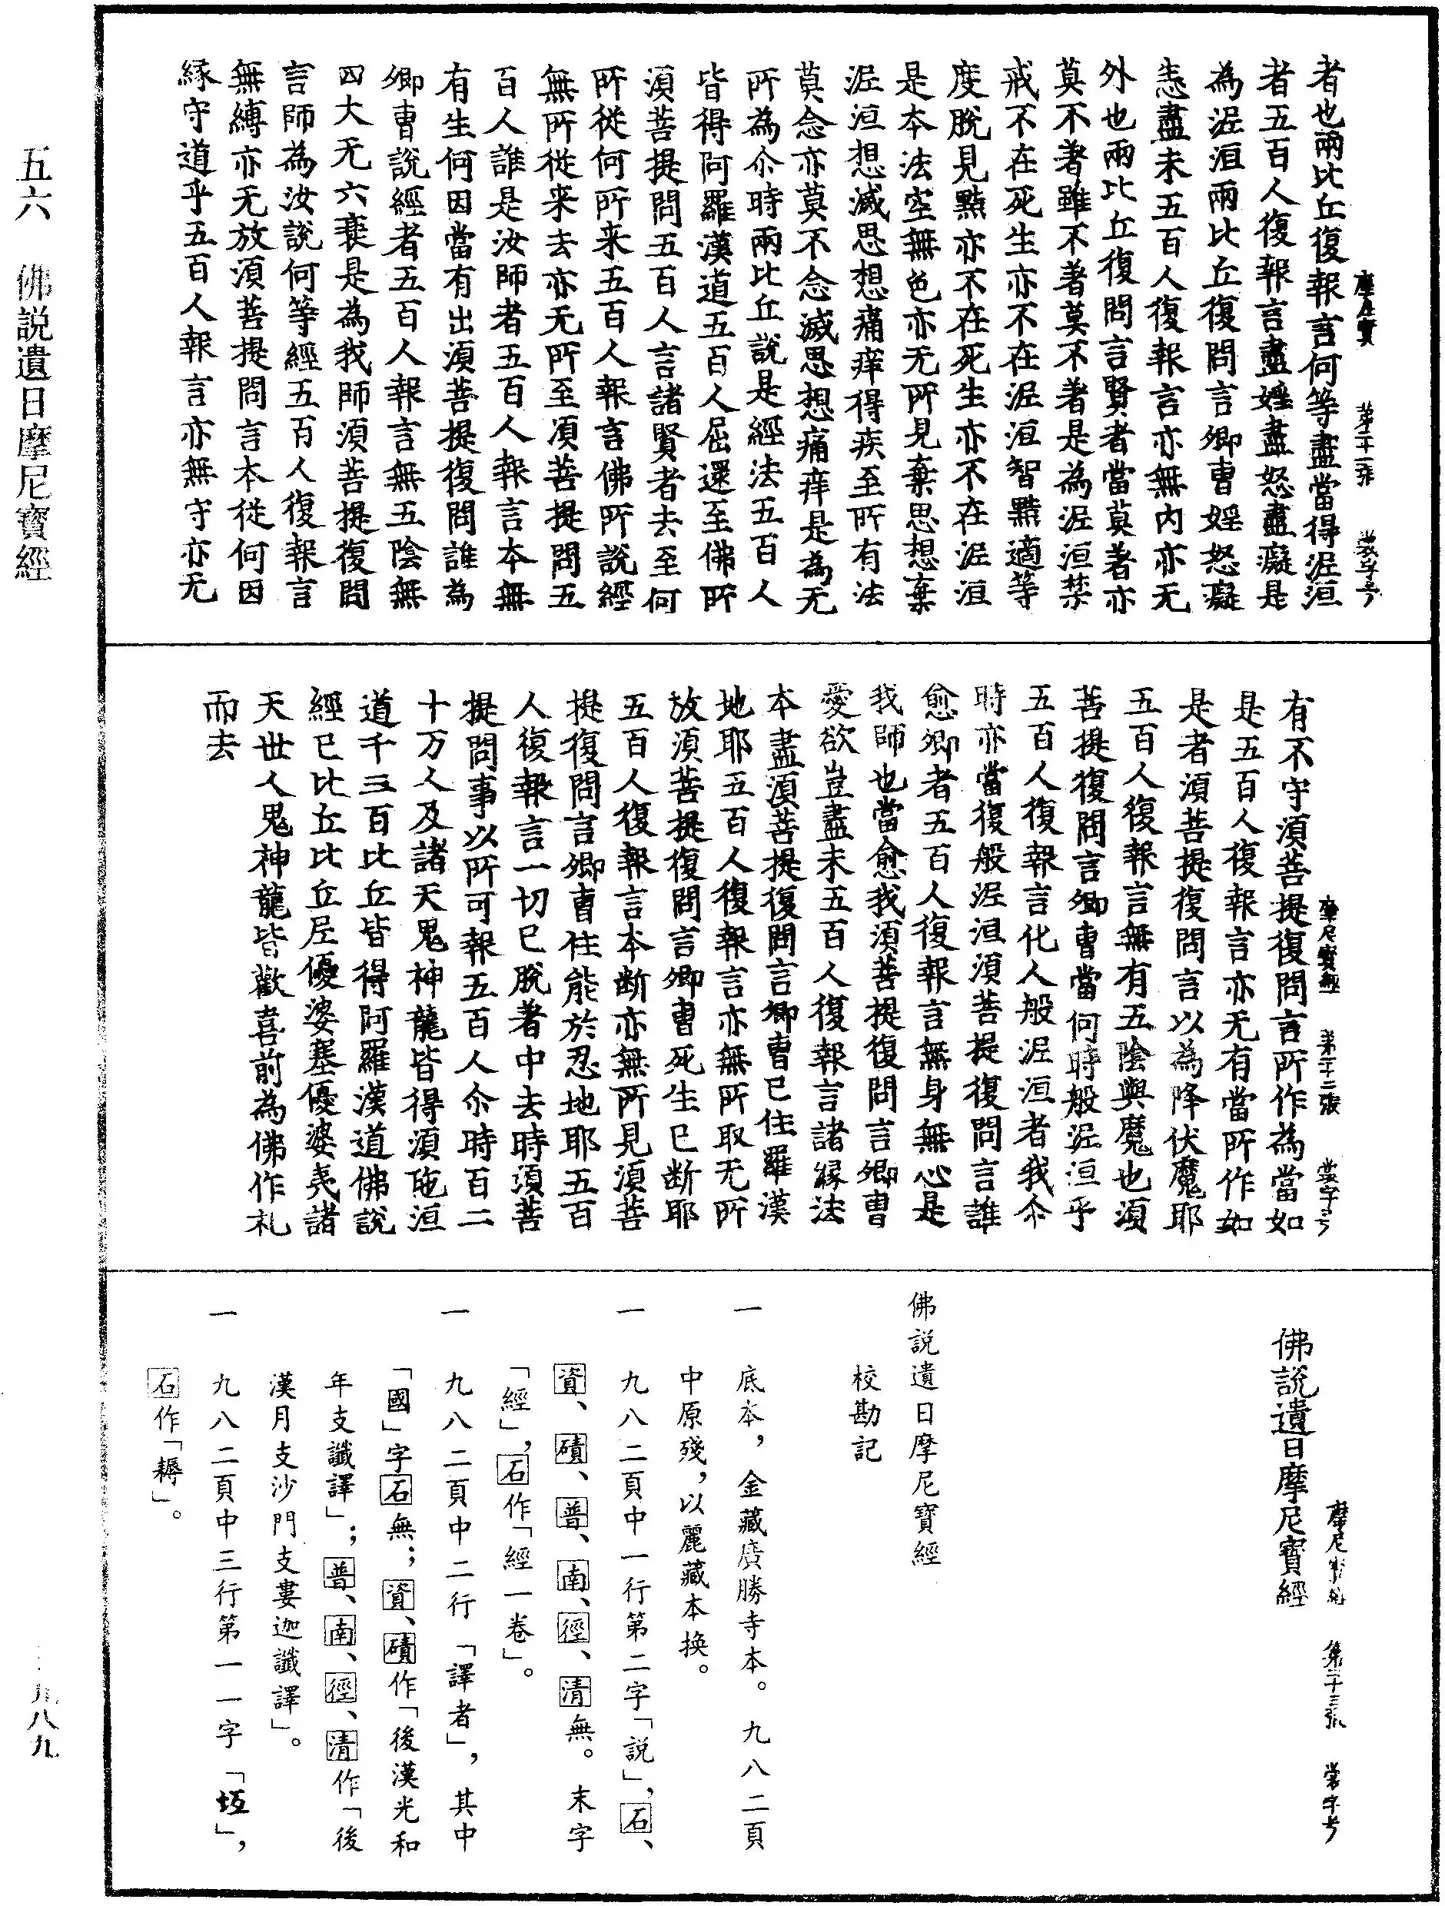 五六　佛説遺日摩尼寶經
摩尼寶　第二十一張　裳字号
者也兩比丘復報言何等盡當得泥洹
者五百人復報言盡婬盡怒盡癡是
為泥洹兩比丘復問言卿曹婬怒癡
悉盡未五百人復報言亦無内亦无
外也兩比丘復問言賢者當莫著亦
莫不著雖不著莫不著是為泥洹禁
戒不在死生亦不在泥洹智黠適等
度脱見黠亦不在死生亦不在泥洹
是本法空無色亦无所見棄思想棄
泥洹想滅思想痛痒得疾至所有法
莫念亦莫不念滅思想痛痒是為无
所為尒時兩比丘説是經法五百人
皆得阿羅漢道五百人屈還至佛所
湏菩提問五百人言諸賢者去至何
所從何所来五百人報言佛所説經
無所從来去亦无所至湏菩提問五
百人誰是汝師者五百人報言本無
有生何因當有出湏菩提復問誰為
卿曹説經者五百人報言無五陰無
四大无六衰是為我師湏菩提復問
言師為汝説何等經五百人復報言
無縛亦无放湏菩提問言本從何因
縁守道乎五百人報言亦無守亦无
摩尼寶經　第二十二張　裳字号
有不守湏菩提復問言所作為當如
是五百人復報言亦无有當所作如
是者湏菩提復問言以為降伏魔耶
五百人復報言無有五陰與魔也湏
菩提復問言卿曹當何時般泥洹乎
五百人復報言化人般泥洹者我尒
時亦當復般泥洹湏菩提復問言誰
愈卿者五百人復報言無身無心是
我師也當愈我湏菩提復問言卿曹
愛欲豈盡未五百人復報言諸縁法
本盡湏菩提復問言卿曹已住羅漢
地耶五百人復報言亦無所取无所
放湏菩提復問言卿曹死生已断耶
五百人復報言本断亦無所見湏菩
提復問言卿曹住能於忍地耶五百
人復報言一切已脱著中去時湏菩
提問事以所可報五百人尒時百二
十万人及諸天鬼神龍皆得湏陁洹
道千三百比丘皆得阿羅漢道佛説
經已比丘比丘尼優婆塞優婆夷諸
天世人鬼神龍皆歡喜前為佛作礼
而去
摩尼寶經　第二十三張　裳字号
佛説遺日摩尼寶經
佛説遺日摩尼寶經
校勘記
一　底本，金藏廣勝寺本。九八二頁
中原殘，以麗藏本换。
一　九八二頁中一行第二字「説」，石、
資、磧、普、南、徑、清無。末字
「經」，石作「經一卷」。
一　九八二頁中二行「譯者」，其中
「國」字石無；資、磧作「後漢光和
年支讖譯」；普、南、徑、清作「後
漢月支沙門支婁迦讖譯」。
一　九八二頁中三行第一一字「垢」，
石作「耨」。
九八九